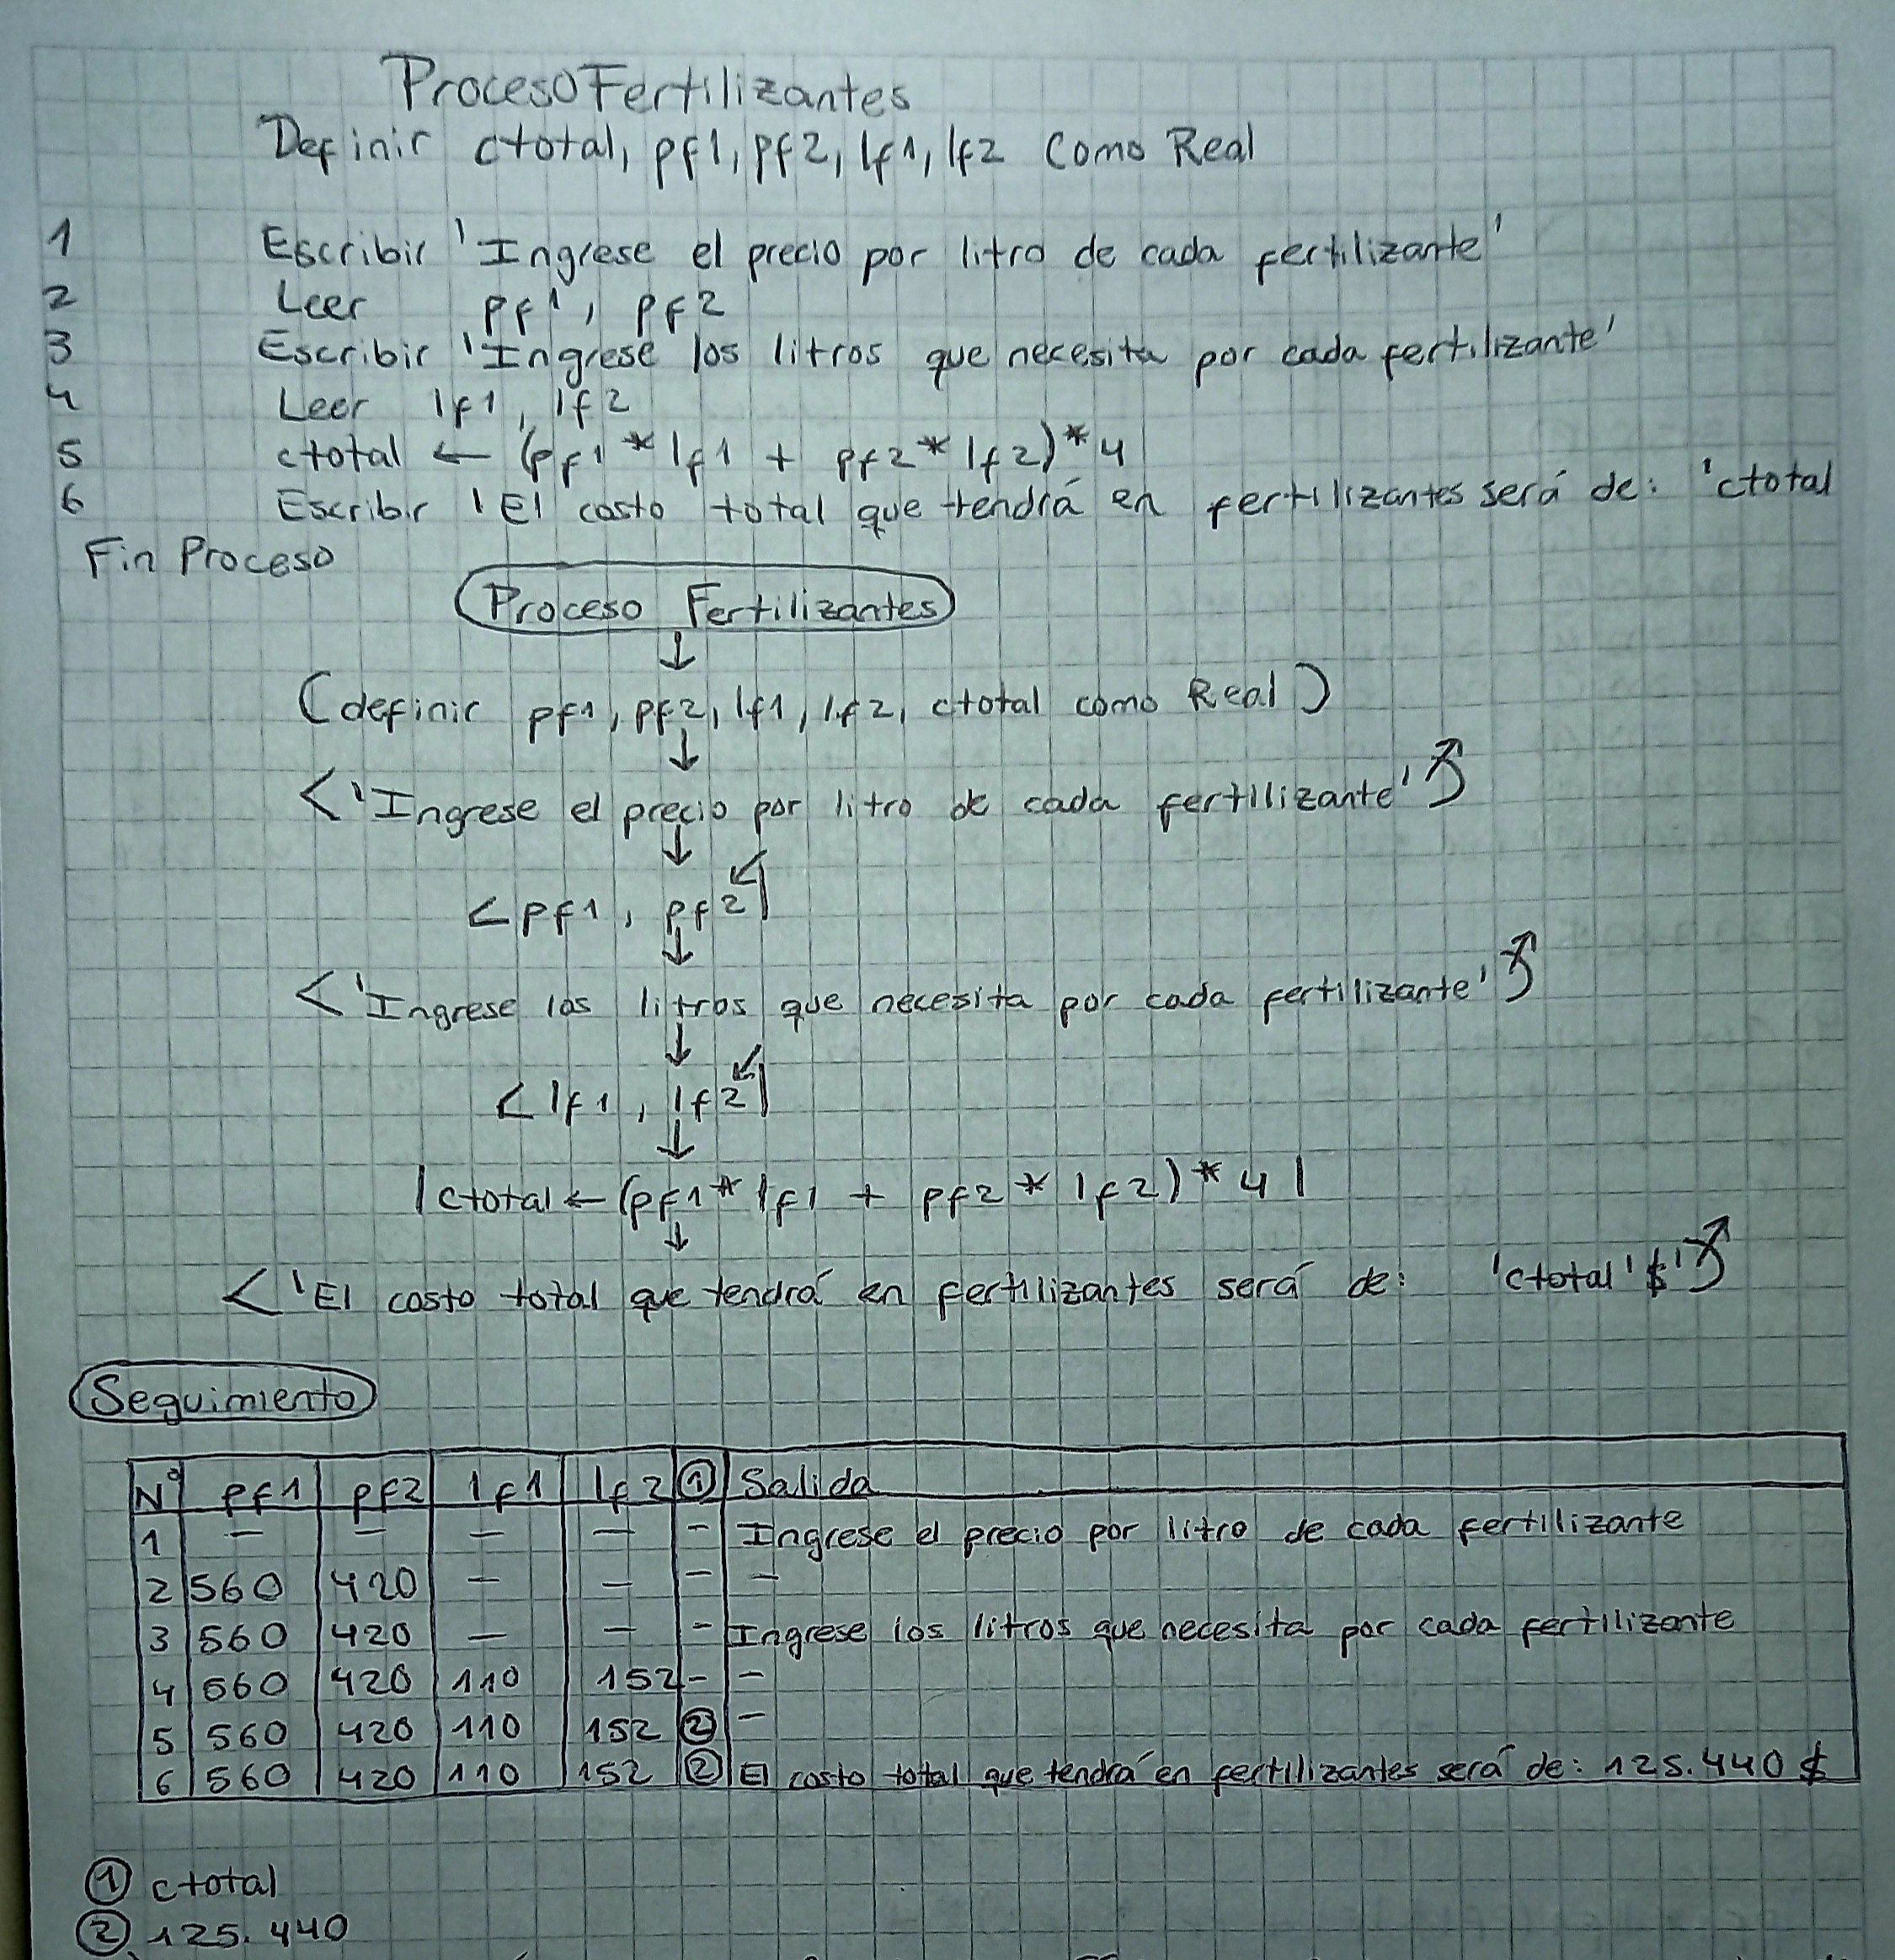 Proceso Fertilizantes
Definir ctotal, pf1, pf2, lf1, lf2 Como Real
1 Escribir 'Ingrese el precio por litro de cada fertilizante'
2 Leer pf1, pf2
3 Escribir 'Ingrese los litros que necesita por cada fertilizante'
4 Leer lf1, lf2
5 ctotal ← (pf1 * lf1 + pf2 * lf2) * 4
6 Escribir 'El costo total que tendrá en fertilizantes será de: 'ctotal
Fin Proceso
Proceso Fertilizantes
(definir pf1, pf2, lf1, lf2, ctotal como Real)
<'Ingrese el precio por litro de cada fertilizante'
<pf1, pf2
<'Ingrese los litros que necesita por cada fertilizante'
<lf1, lf2
|ctotal ← (pf1 * lf1 + pf2 * lf2) * 4|
<'El costo total que tendrá en fertilizantes será de: 'ctotal'$'
Seguimiento
Nº pf1 pf2 lf1 lf2 ① Salida
1 — — — — - Ingrese el precio por litro de cada fertilizante
2 560 420 — — - -
3 560 420 — — - Ingrese los litros que necesita por cada fertilizante
4 560 420 110 152 - -
5 560 420 110 152 ② -
6 560 420 110 152 ② El costo total que tendrá en fertilizantes será de: 125.440 $
① ctotal
② 125.440